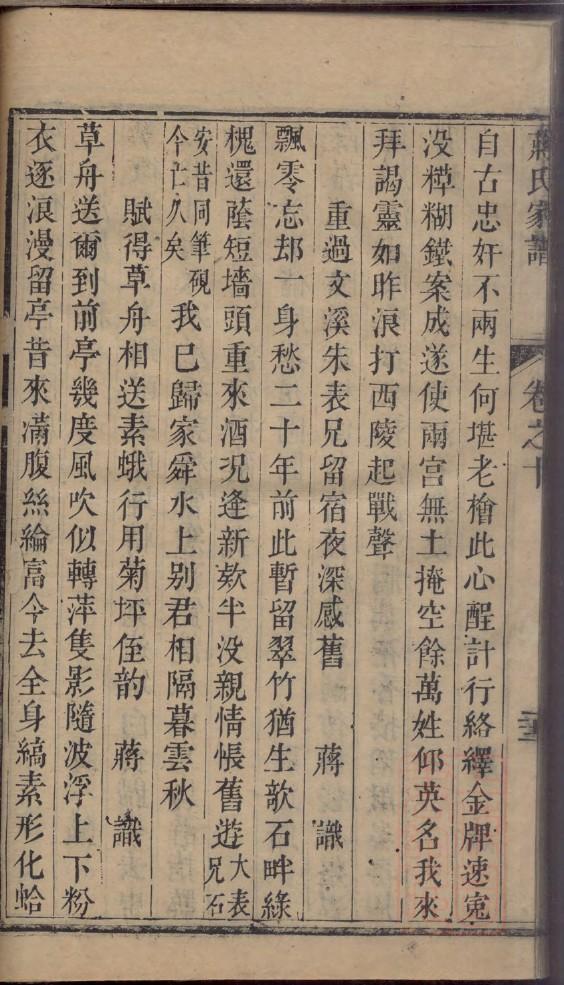 蔣氏家譜 卷之十
自古忠奸不兩生何堪老檜此心酲計行絡繹金牌速寃
没糢糊鐵案成遂使兩宫無土掩空餘萬姓仰英名我來
拜謁靈如昨浪打西陵起戰聲
重過文溪朱表兄留宿夜深感舊 蔣 識
飄零忘却一身愁二十年前此暫留翠竹猶生歌石畔綠
槐還蔭短墻頭重來酒况逢新欵半没親情悵舊遊大表兄石
安昔同筆硯今亡久矣我已歸家舜水上别君相隔暮雲秋
賦得草舟相送素蛾行用菊坪侄韵 蔣 識
草舟送爾到前亭幾度風吹似轉萍隻影隨波浮上下粉
衣逐浪漫留亭昔來滿腹絲綸富今去全身縞素形化蛤